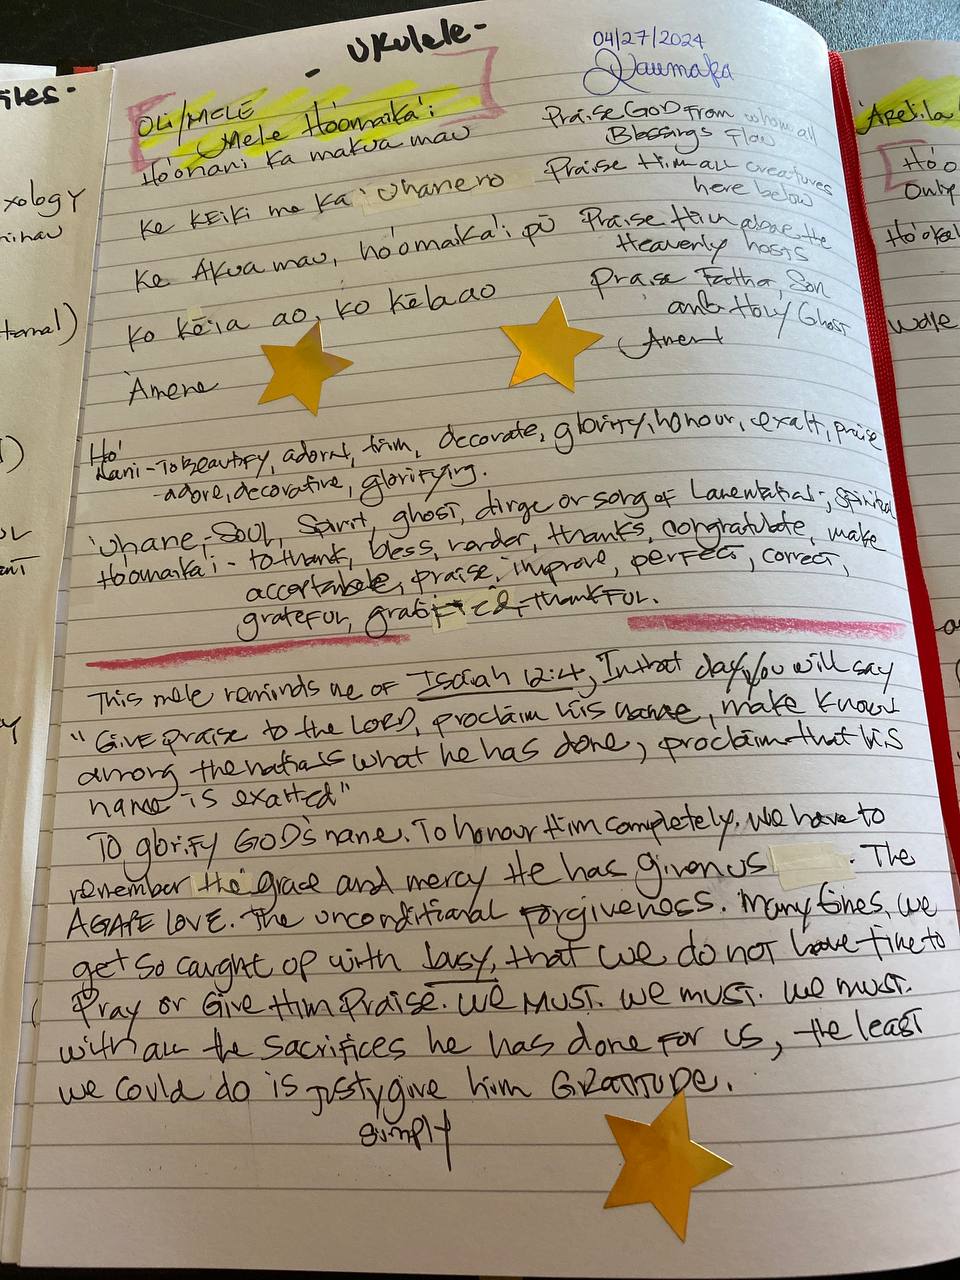 - Ukulele -
04/27/2024
Kaumaka
OLI/MELE
Mele Ho'omaika'i
Ho'onani ka makua mau
Ke KEiKi me Ka 'Uhanero
Ke Akua mau, ho'omaika'i pū
Ko kēia ao, ko kēlaao
'Amene
Praise GOD From whom all
Blessings Flow
Praise Him all creatures
here below
Praise Him above the
Heavenly hosts
Praise Father, Son
and Holy Ghost
Amen
Ho'
nani - To Beautify, adorn, trim, decorate, glorify, honour, exalt, praise
- adore, decorative, glorifying.
'Uhane - Soul, Spirit, ghost, dirge or song of Lamentation; spiritual
Ho'omaika'i - to thank, bless, render, thanks, congratulate, make
acceptable, praise, improve, perfect, correct,
grateful, gratified, thankful.
This mele reminds me of Isaiah 12:4, In that day, you will say
"GIVE praise to the LORD, proclaim his name, make known
among the nations what he has done, proclaim that his
name is exalted"
To glorify GOD's name. To honour Him completely. We have to
remember the grace and mercy He has given us . The
AGAPE LOVE. The unconditional Forgiveness. Many times, we
get so caught up with busy, that we do not have time to
Pray or Give Him Praise. We MUST. We must. We must.
With all the sacrifices he has done for us, the least
we could do is justy give him GRATITUDE.
simply
iles -
xology
ternal)
Apelila
Ho'o
Only
Ho'okel
Wale